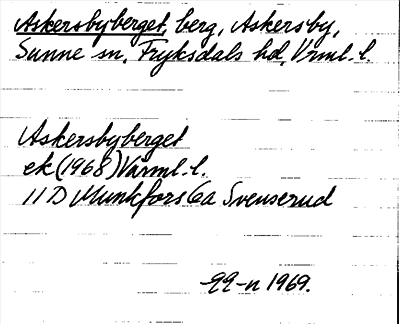 Askersbyberget, berg, Askersby,
Sunne sn, Fryksdals hd, Vrml. l.
Askersbyberget
ek (1968) Värml. l.
11 D Munkfors 6a Svenserud
-99-n 1969.